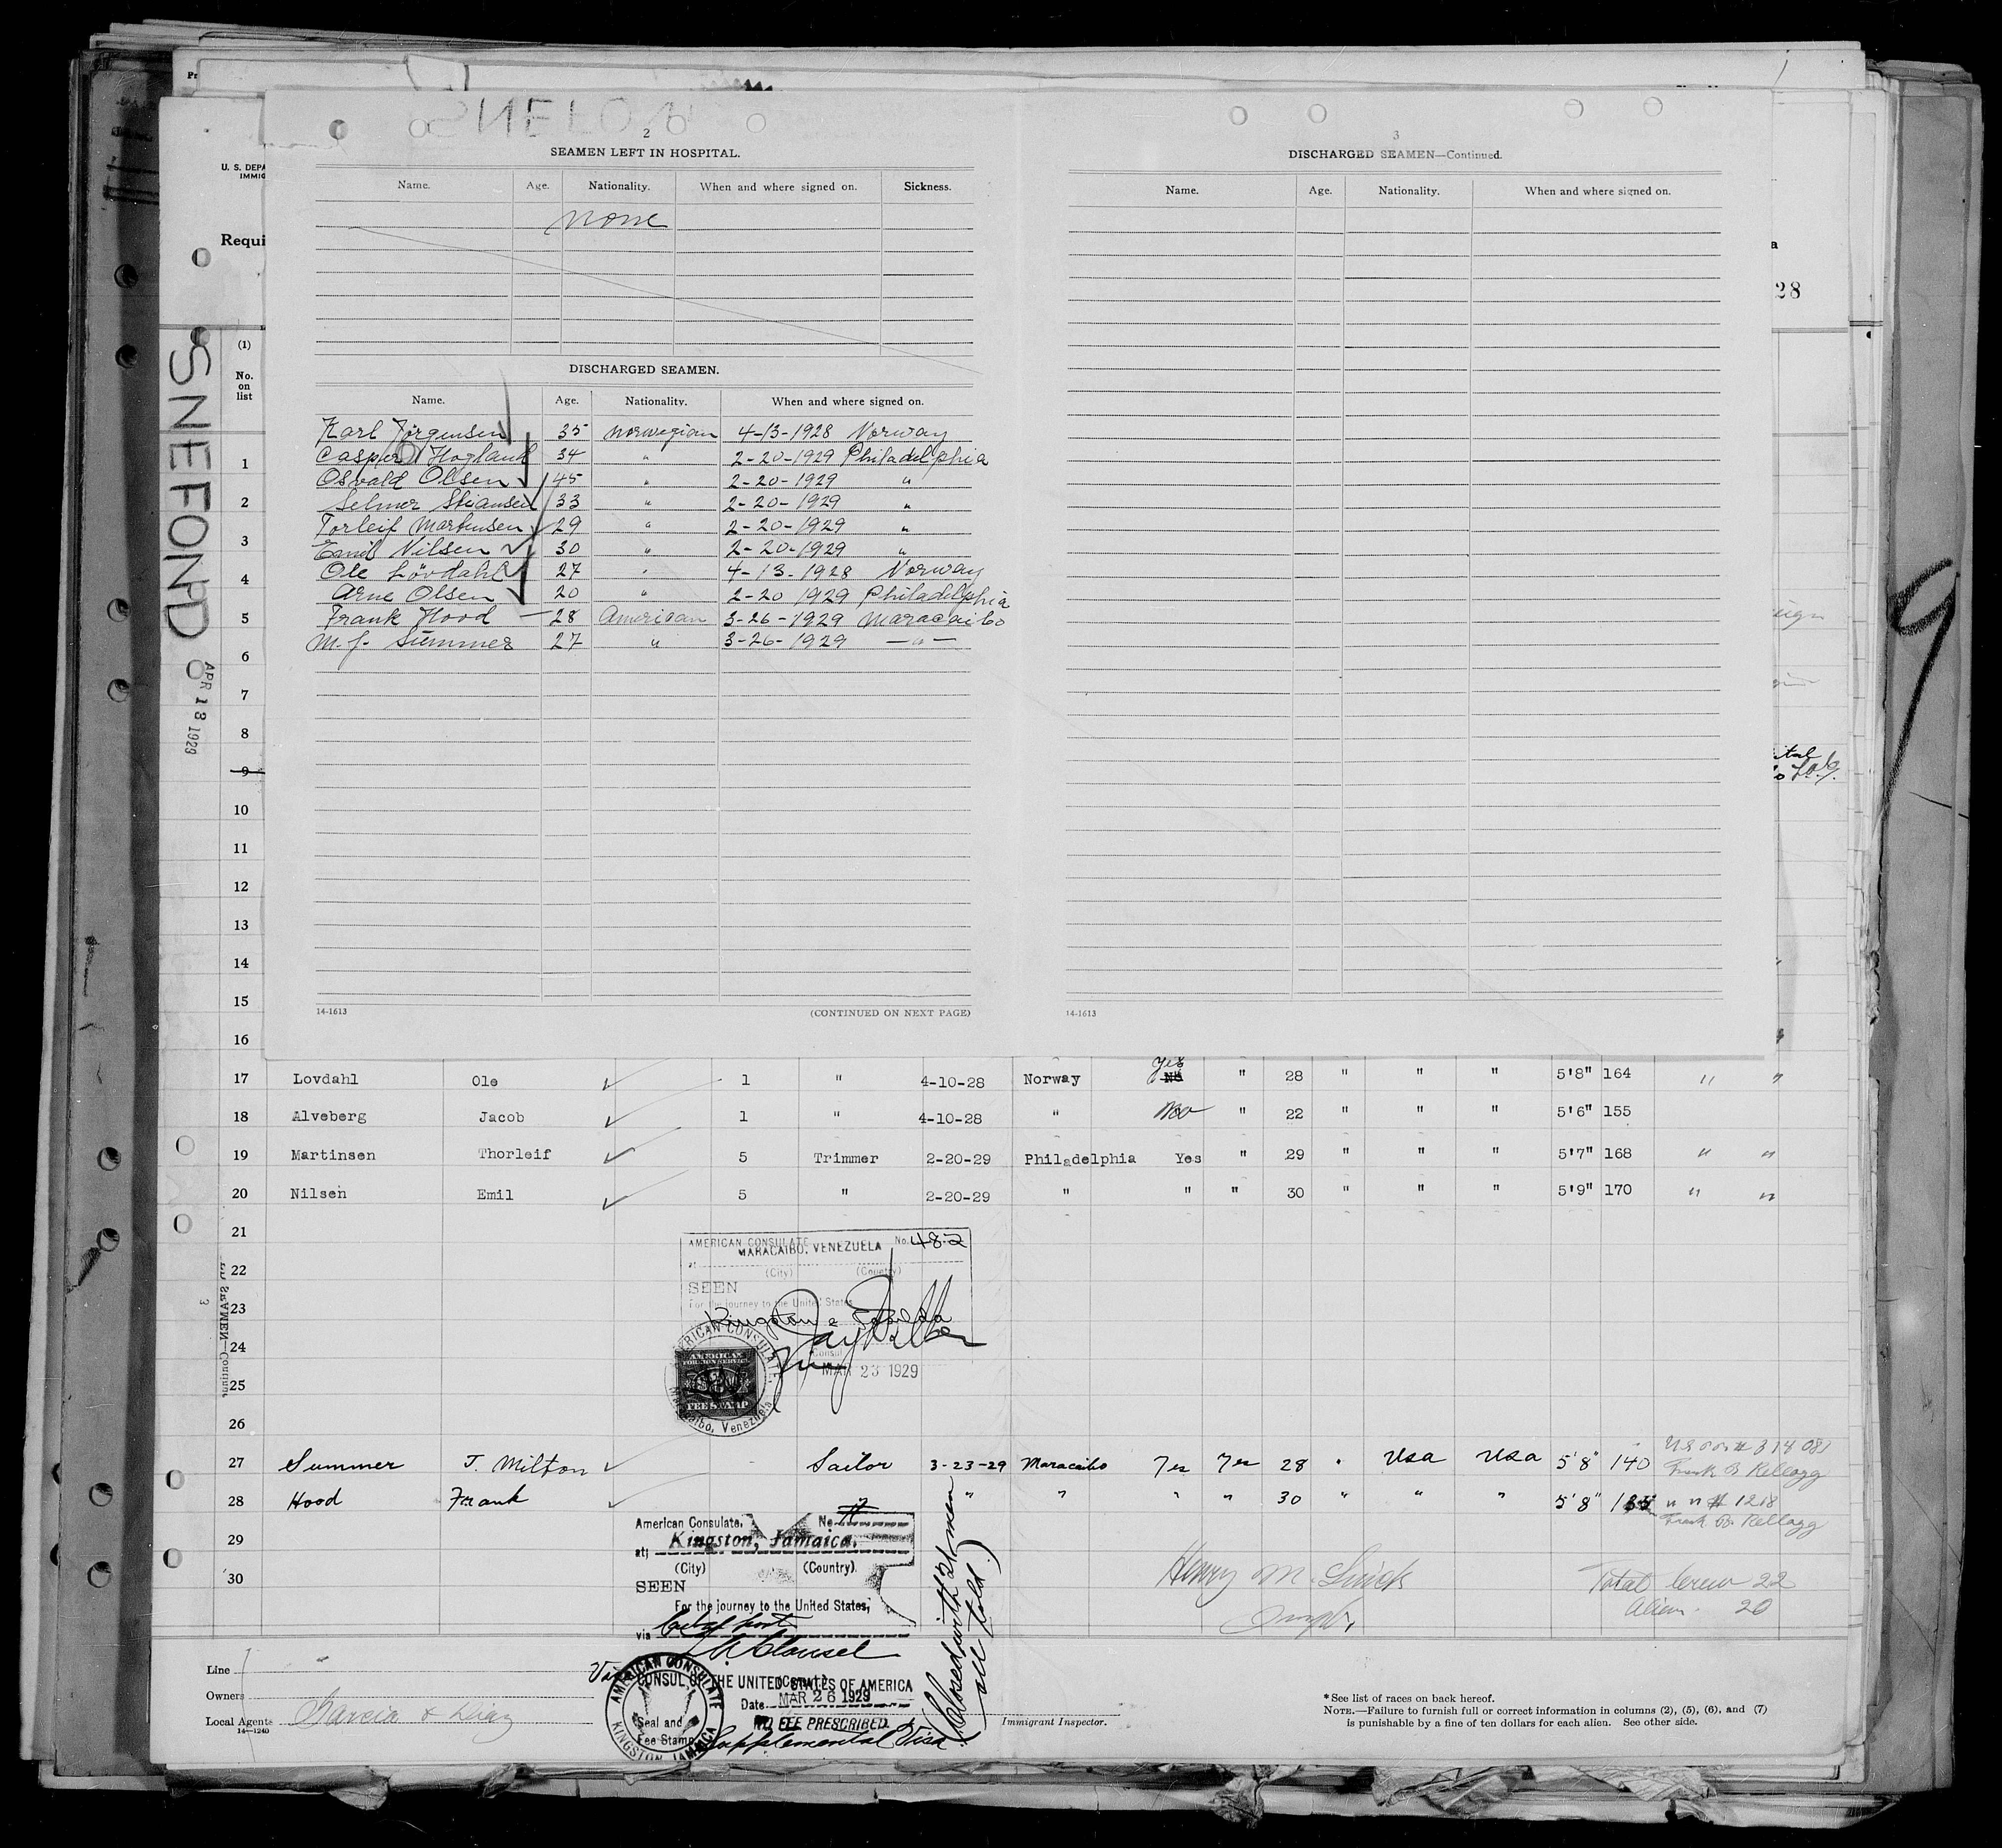 SNEFOND
2
SEAMEN LEFT IN HOSPITAL.
Name. Age. Nationality. When and where signed on. Sickness.
None
DISCHARGED SEAMEN.
Name. Age. Nationality. When and where signed on.
Karl Jørgensen 35 Norwegian 4-13-1928 Norway
Casper Hogland 34 " 2-20-1929 Philadelphia
Osvald Olsen 45 " 2-20-1929 "
Selmer Stiansen 33 " 2-20-1929 "
Torleif Martinsen 29 " 2-20-1929 "
Emil Nilsen 30 " 2-20-1929 "
Ole Lövdahl 27 " 4-13-1928 Norway
Arne Olsen 20 " 2-20 1929 Philadelphia
Frank Hood — 28 American 3-26-1929 Maracaibo
M. J. Summer 27 " 3-26-1929 —"—
14-1613 (CONTINUED ON NEXT PAGE)
3
DISCHARGED SEAMEN—Continued.
Name. Age. Nationality. When and where signed on.
14-1613
U. S. DEPA
IMMIG
Requi
28
SNEFOND
APR 18 1929
(1)
No.
on
list
1
2
3
4
5
6
7
8
9
10
11
12
13
14
15
16
17 Lovdahl Ole 1 " 4-10-28 Norway Yes No " 28 " " " 5'8" 164 " "
18 Alveberg Jacob 1 " 4-10-28 " No " 22 " " " 5'6" 155
19 Martinsen Thorleif 5 Trimmer 2-20-29 Philadelphia Yes " 29 " " " 5'7" 168 " "
20 Nilsen Emil 5 " 2-20-29 " " " 30 " " " 5'9" 170 " "
21
22
23
24
25
26
AMERICAN CONSULATE No. 482
MARACAIBO, VENEZUELA
(City) (Country)
SEEN
For the journey to the United States
Kingston
Consul
MAR 23 1929
AMERICAN CONSULATE
Maracaibo, Venezuela
AMERICAN
FOREIGN SERVICE
FEE STAMP
27 Summer J. Milton Sailor 3-23-29 Maracaibo Yes Yes 28 " USA USA 5'8" 140
Frank B Kellogg
28 Hood Frank " " " " " 30 " " " 5'8" " " # 1218
Frank B. Kellogg
29
30
American Consulate, No
at; Kingston, Jamaica.
(City) (Country)
SEEN
For the journey to the United States,
via
CONSUL OF THE UNITED STATES OF AMERICA
Date MAR 26 1929
Seal and
Fee Stamp
NO FEE PRESCRIBED.
Supplemental Visa
AMERICAN CONSULATE
KINGSTON JAMAICA
(Closed with 21 men
all told)
Total Crew 22
Alien. 20
Line
Owners
Local Agents Garcia & Diaz
14—1240
Immigrant Inspector.
*See list of races on back hereof.
NOTE.—Failure to furnish full or correct information in columns (2), (5), (6), and (7)
is punishable by a fine of ten dollars for each alien. See other side.